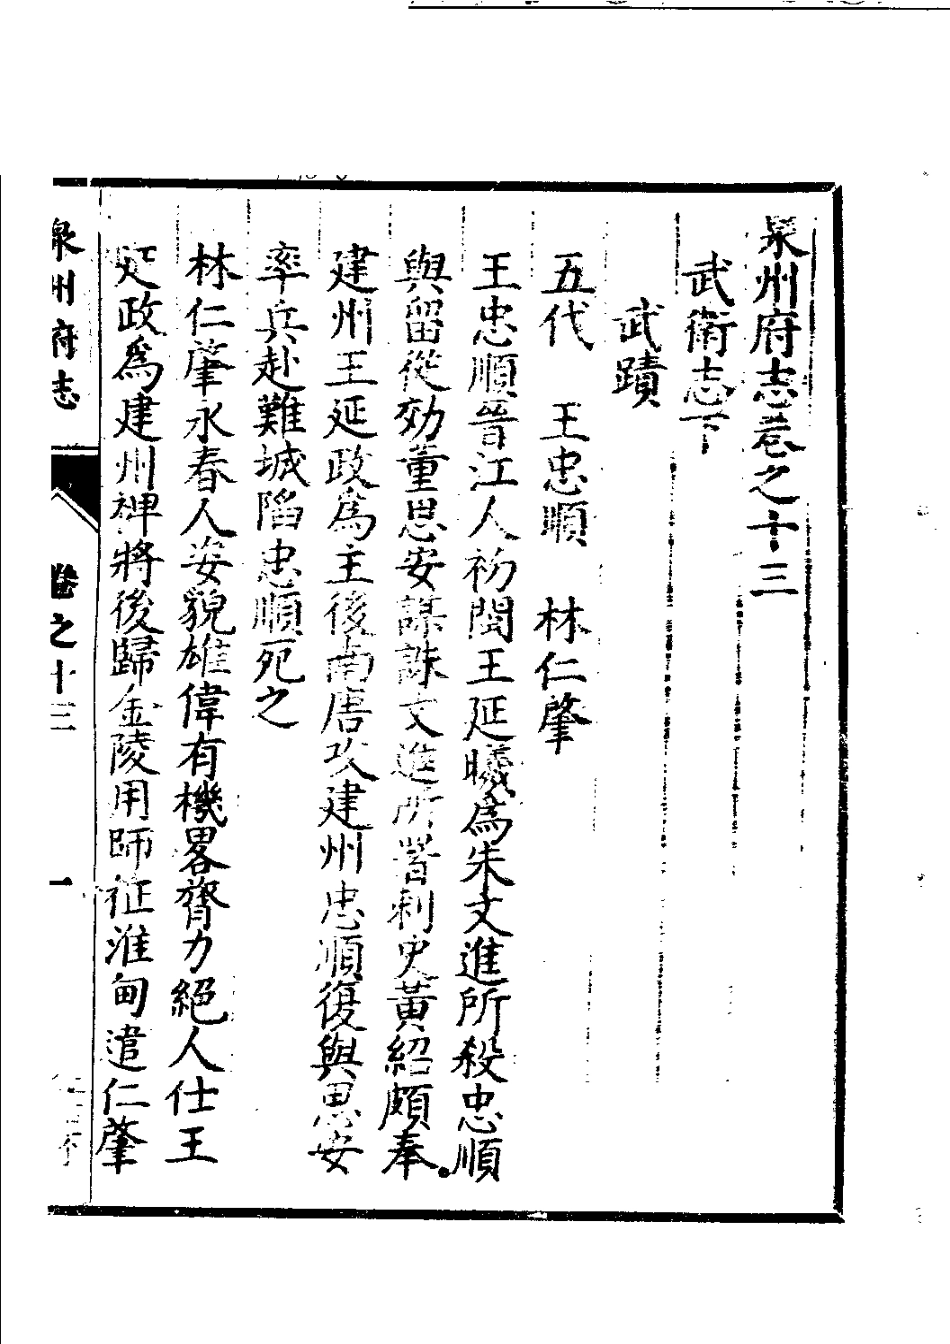 泉州府志卷之十三
武衛志下
武蹟
五代　王忠順　林仁肇
王忠順晉江人初閩王延曦為朱文進所殺忠順
與留從効董思安謀誅文進所署刺史黃紹頗奉
建州王延政為主後南唐攻建州忠順復與思安
率兵赴難城陷忠順死之
林仁肇永春人姿貌雄偉有機畧膂力絕人仕王
延政為建州裨將後歸金陵用師征淮甸遣仁肇
泉州府志　卷之十三　一